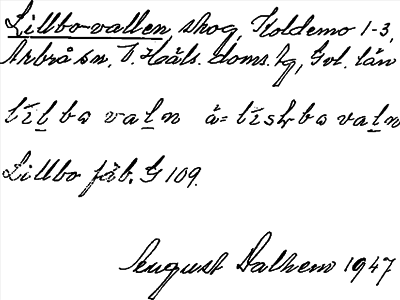 Lillbo-vallen, skog, Koldemo 1-3,
Arbrå sn, V. Häls. doms. hg, Gvl. län
lil̲ bɷ val̲n å = lisḥ bɷ val̲n
Lillbo fäb. G 109.
August Dalhem 1947